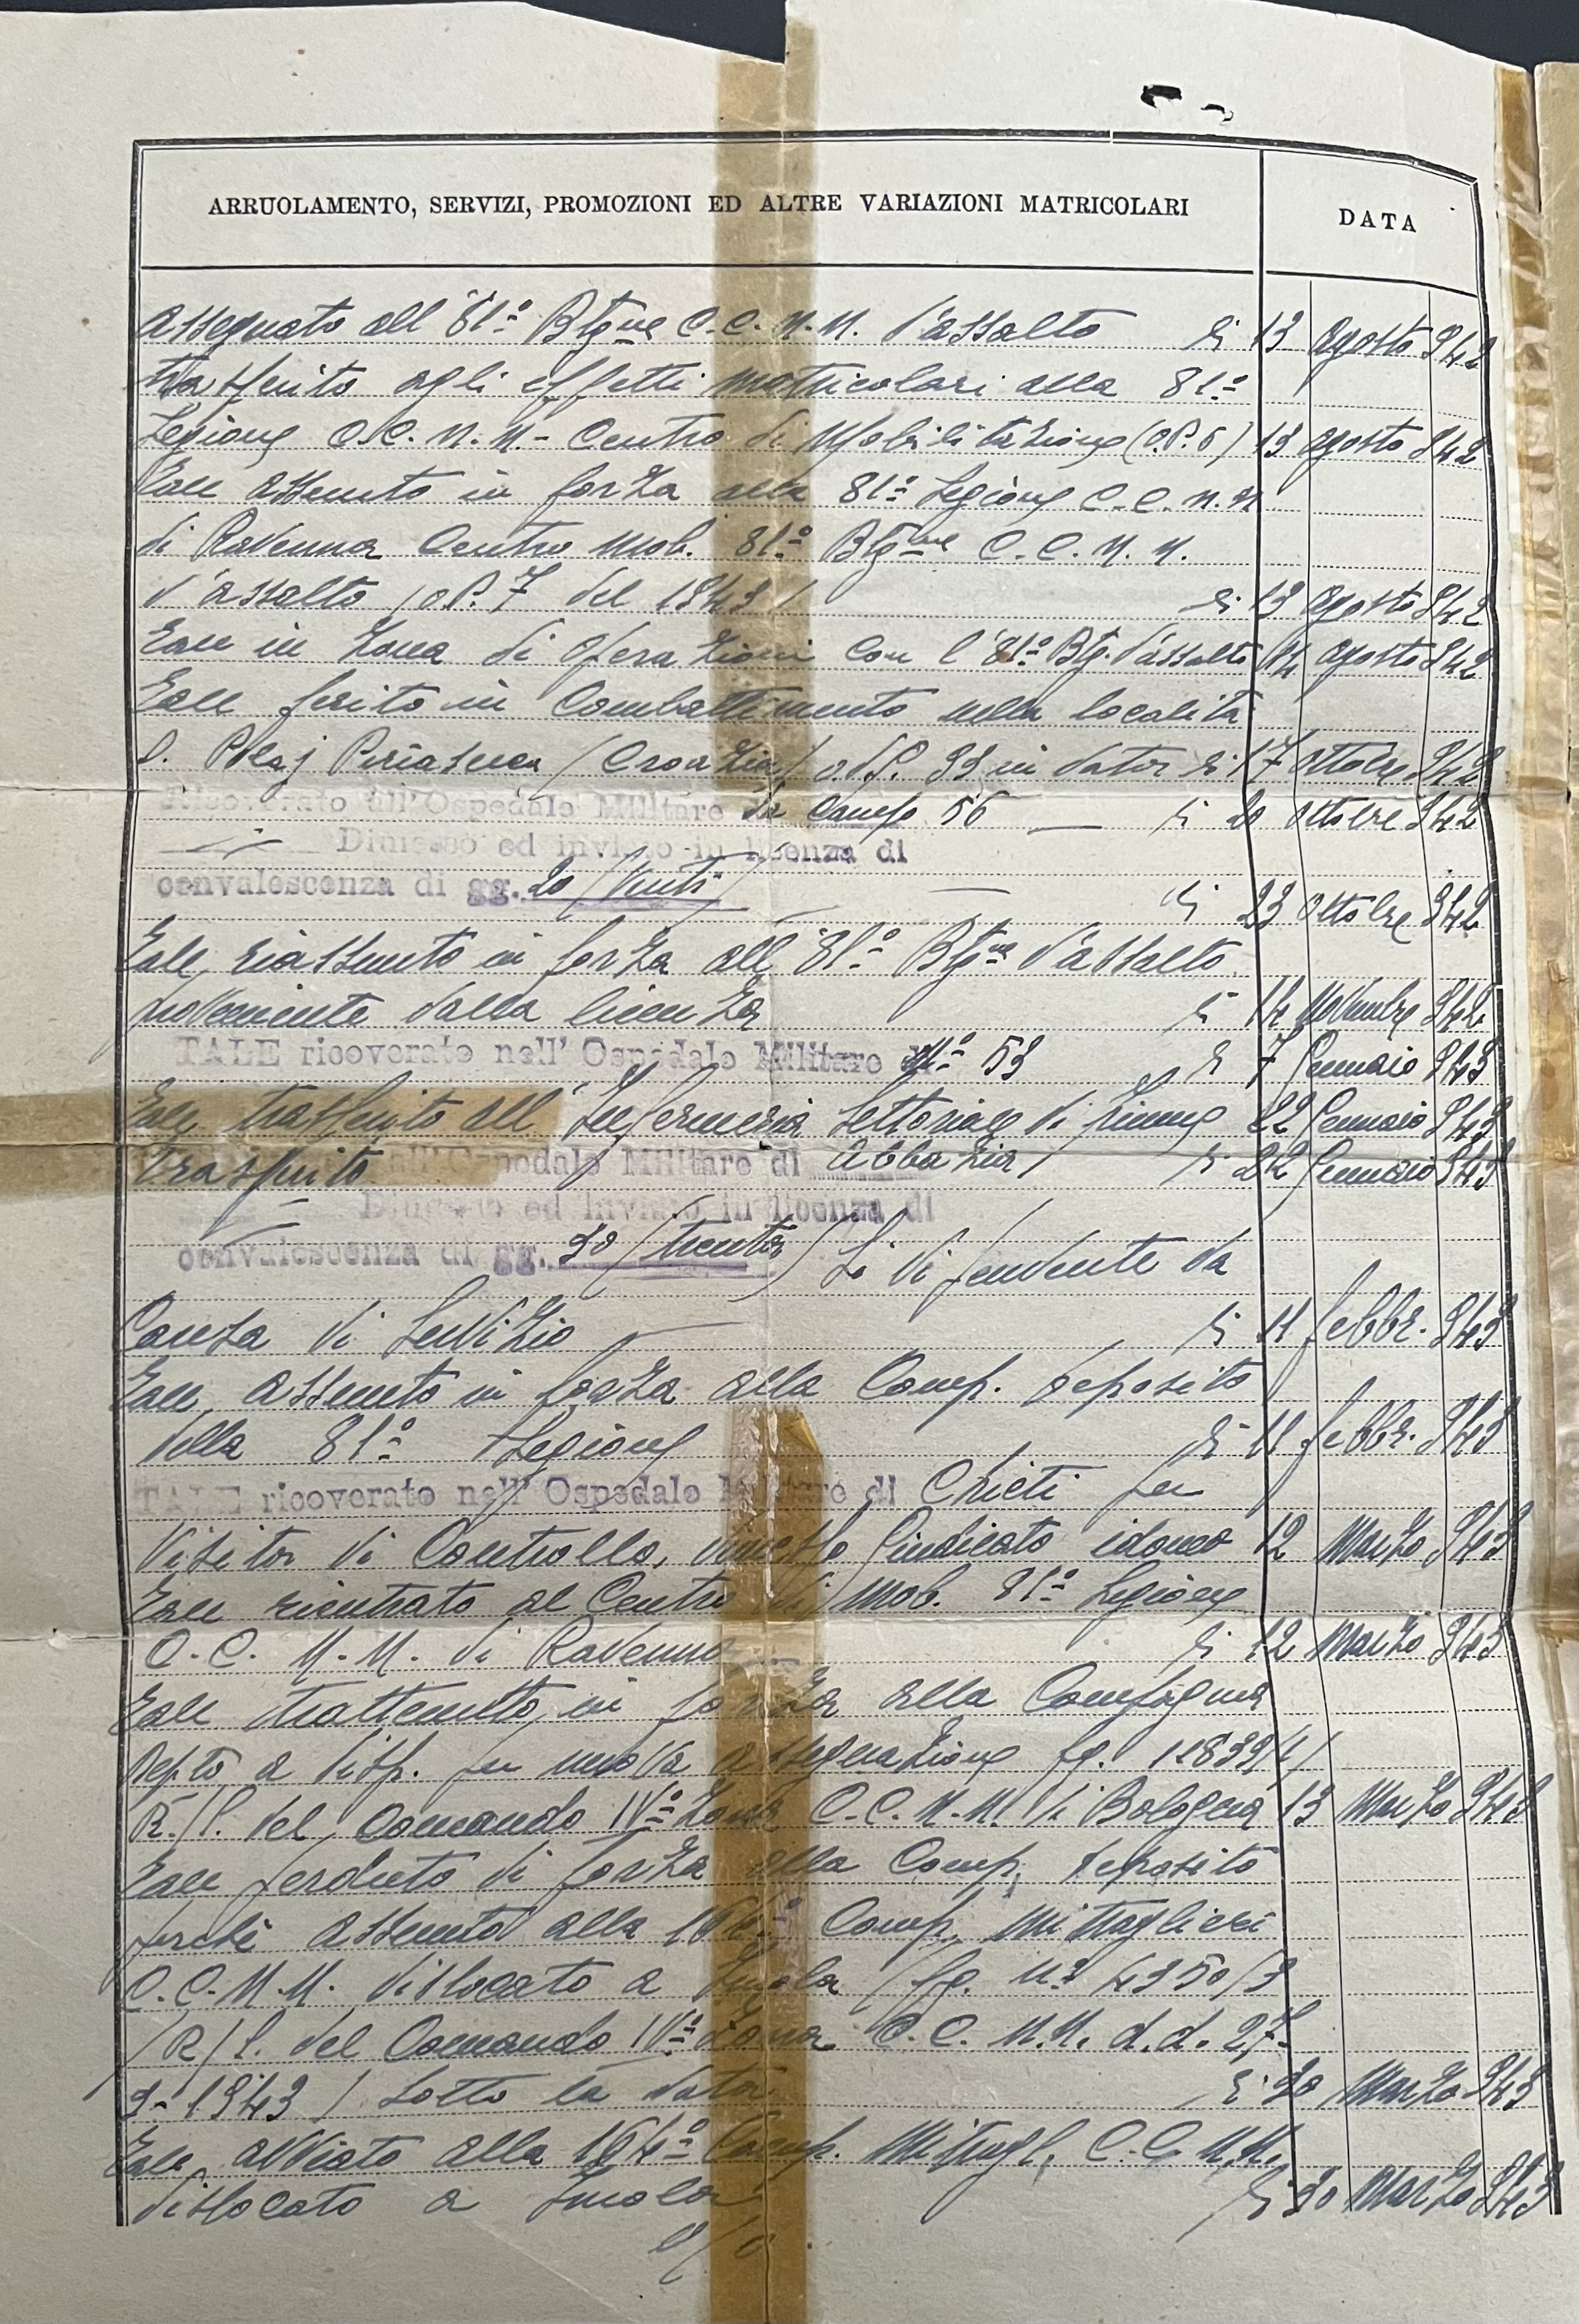 ARRUOLAMENTO, SERVIZI, PROMOZIONI ED ALTRE VARIAZIONI MATRICOLARI DATA
Assegnato all'81º Btg.ne C.C. N.N. d'assalto li 13 Agosto 942
Trasferito agli effetti matricolari alla 81ª
Legione C.C. N.N. - Centro di Mobilitazione (O.P. 5) 13 Agosto 942
Tale assunto in forza alla 81ª Legione C.C. N.N.
di Ravenna Centro Mob. 81º Btg.ne C.C. N.N.
d'assalto / O.P. 7 del 1943 / li 13 Agosto 942
Tale in zona di operazioni con l'81º Btg. d'assalto 14 Agosto 942
Tale ferito in combattimento nella località
(Croazia) o.d.P. 33 in data li 17 Ottobre 942
Ricoverato all'Ospedale Militare da Campo 56 — li 20 Ottobre 942
Dimesso ed inviato in licenza di
convalescenza di gg. 20 (Venti) — li 23 Ottobre 942
Tale, riassunto in forza all'81º Btg.ne d'assalto
proveniente dalla licenza li 14 Novembre 942
TALE ricoverato nell'Ospedale Militare Nº 53 li 7 Gennaio 943
Tale trasferito all'Infermeria Settoriale di Fiume 22 Gennaio 943
Trasferito all'Ospedale Militare di Abbazia li 22 Gennaio 943
Dimesso ed inviato in licenza di
convalescenza di gg. 30 (trenta) Si dipendente da
Causa di Servizio — li 11 febbr. 943
Tale, assunto in forza alla Comp. deposito
della 81ª Legione li 11 febbr. 943
TALE ricoverato nell'Ospedale Militare di Chieti per
Visita di Controllo, dimesso Giudicato idoneo 12 Marzo 943
Tale rientrato al Centro di Mob. 81ª Legione
C.C. N.N. di Ravenna li 12 Marzo 943
Tale trattenuto in forza alla Compagnia
Dep.to a disp. per nuova assegnazione fg. 11839/1/
R./P. del Comando IVª Zona C.C. N.N. di Bologna 13 Marzo 943
Tale perduto di forza alla Comp. deposito
perchè assunto alla 164ª Comp. Mitraglieri
C.C. N.N. dislocato a Imola (fg. nº 4350/3
/R/P. del Comando IVª Zona C.C. N.N. d.d. 27-
3-1943 / Sotto la data li 30 Marzo 943
Tale avviato alla 164ª Comp. Mitragl. C.C. N.N.
dislocato a Imola li 30 Marzo 943